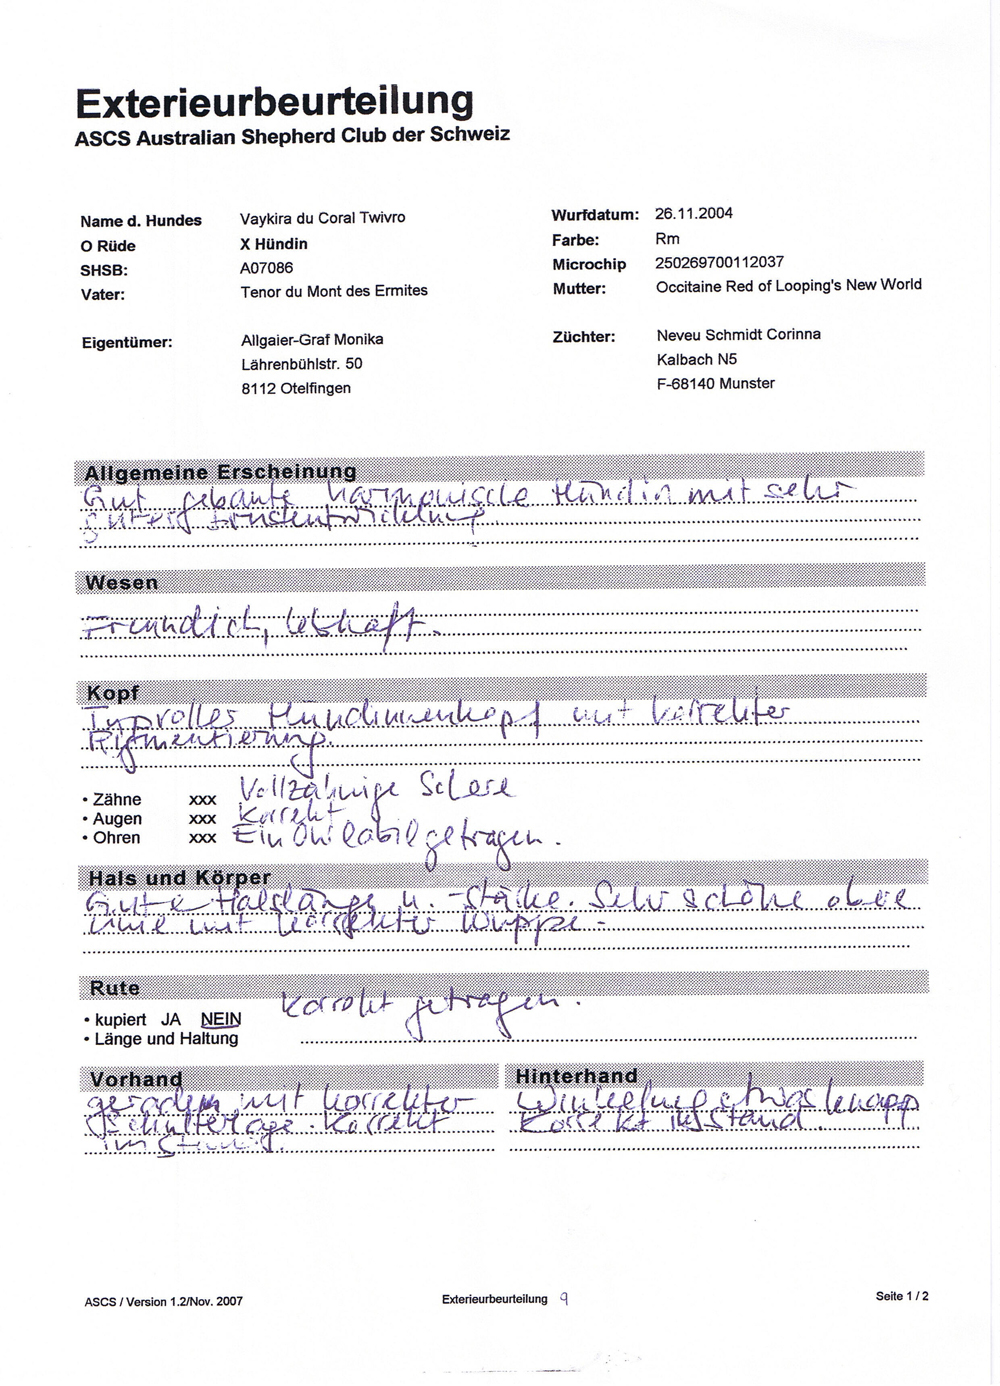 Exterieurbeurteilung
ASCS Australian Shepherd Club der Schweiz
Name d. Hundes Vaykira du Coral Twivro Wurfdatum: 26.11.2004
O Rüde X Hündin Farbe: Rm
SHSB: A07086 Microchip 250269700112037
Vater: Tenor du Mont des Ermites Mutter: Occitaine Red of Looping's New World
Eigentümer: Allgaier-Graf Monika Züchter: Neveu Schmidt Corinna
Lährenbühlstr. 50 Kalbach N5
8112 Otelfingen F-68140 Munster
Allgemeine Erscheinung
Gut gebaute harmonische Hündin mit sehr
guter Brustentwicklung.
Wesen
Freundlich, lebhaft.
Kopf
Typvolles Hündinnenkopf mit korrekter
Pigmentierung.
• Zähne xxx Vollzahnige Schere
• Augen xxx Korrekt
• Ohren xxx Ein Ohr labil getragen.
Hals und Körper
Gute Halslänge u. -Stärke. Sehr schöne obere
Linie mit korrekter Kruppe.
Rute
Korrekt getragen.
• kupiert JA NEIN
• Länge und Haltung
Vorhand
geradem mit korrekter
Schulterlage. Korrekt
im
Hinterhand
Winkelung etwas knapp
Korrekt im Stand.
ASCS / Version 1.2/Nov. 2007 Exterieurbeurteilung 9 Seite 1 / 2